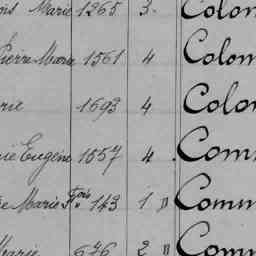 ns Marie 1265 3 Colon
Pierre Marie 1561 4 Colom
rie 1693 4 Colo
ie Eugène 1557 4 Comm
e Marie Fois 143 1 " Comm
Marie 676 2 " Comm